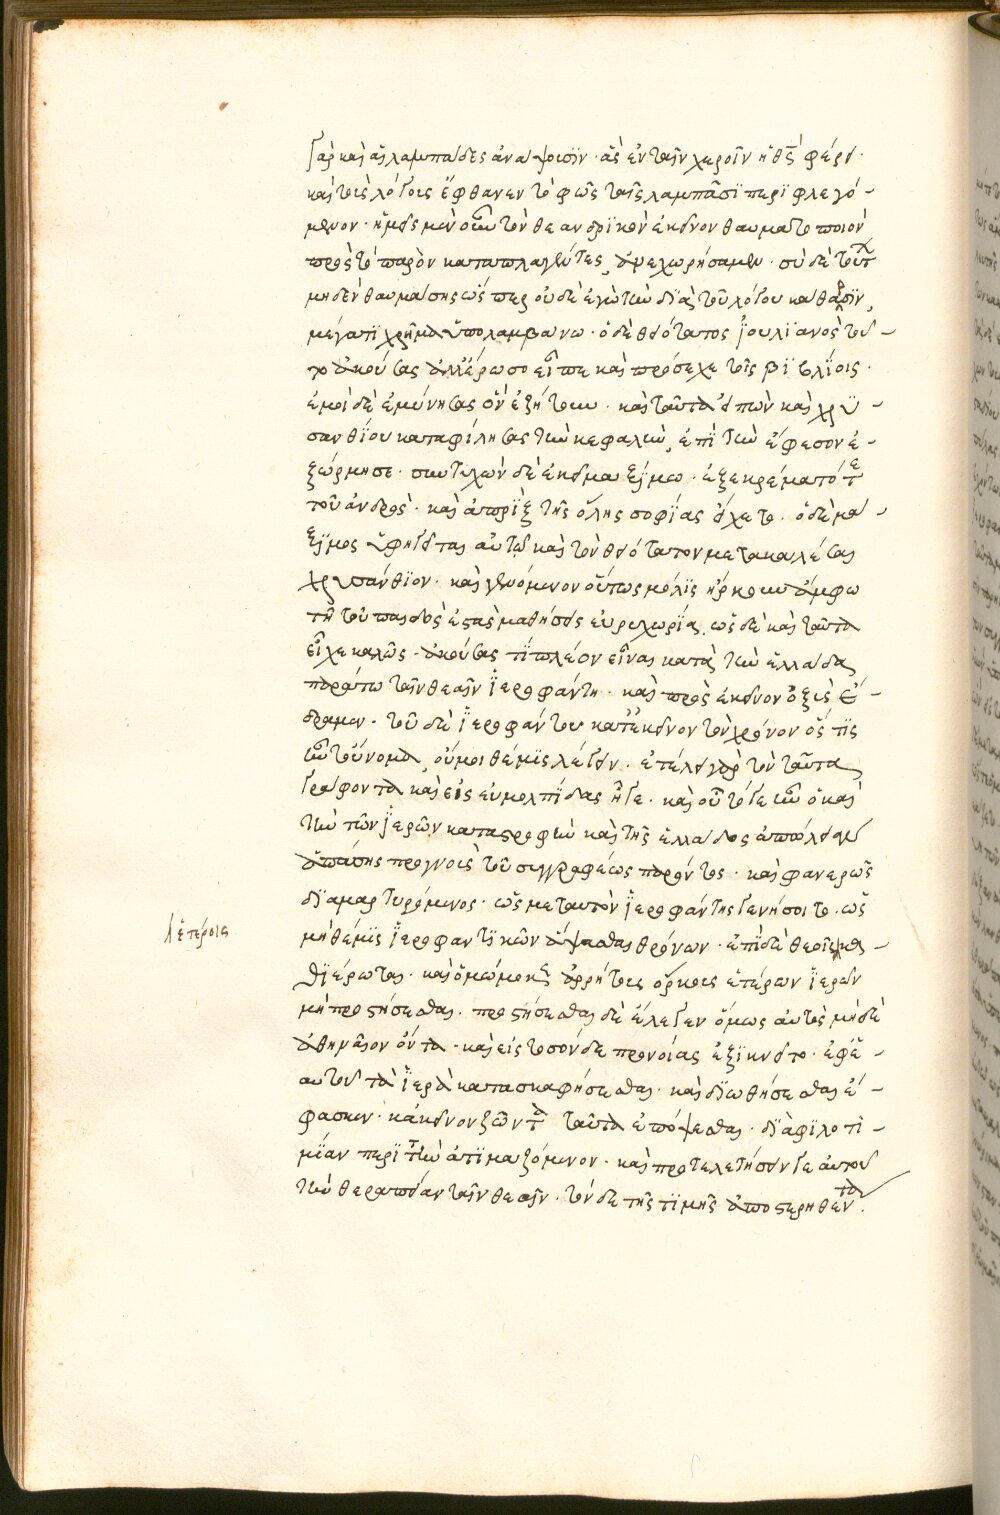 γὰρ καὶ αἱ λαμπάδες ἀνάψουσιν· ἃς ἐν ταῖν χεροῖν ἡ θεὸς φέρει·
καὶ τοὺς λόγους ἔφθανεν τὸ φῶς ταῖς λαμπᾶσϊ περϊφλεγό-
μενον· ἡμεῖς μὲν οὖν τὸν θεανδρϊκὸν ἐκεῖνον θαυματοποιὸν
πρὸς τὸ παρὸν καταπλαγέντες, ἀνεχωρήσαμεν· σὺ δὲ τούτων
μηδὲν θαυμάσῃς ὥσπερ οὐδὲ ἐγὼ τὴν δϊὰ τοῦ λόγου κάθαρσϊν,
μέγα τϊ χρῆμα ὑπολαμβάνω· ὁ δὲ θειότατος ϊουλϊανὸς τοῦ-
το ἀκούσας ἀλλ' ἔρρωσο εἶπε καὶ πρόσεχε τοῖς βϊβλΐοις·
ἐμοὶ δὲ ἐμήνυσας ὃν ἐζήτουν· καὶ ταῦτα εἰπὼν καὶ χρυ-
σανθΐου καταφϊλήσας τὴν κεφαλὴν, ἐπϊ τὴν ἔφεσον ἐ-
ξώρμησε· συντυχὼν δὲ ἐκεῖ μαξΐμω· ἐξεκρέματό τε
τοῦ ἀνδρὸς· καὶ ἀπρὶξ τῆς ὅλης σοφΐας εἴχετο· ὁ δὲ μά-
ξϊμος ὑφηγεῖται αὐτῷ καὶ τὸν θειότατον μετακαλέσαι
χρυσάνθϊον· καὶ γενόμενον οὕτως μόλϊς ἤρκουν ἄμφω
τῇ τοῦ παιδὸς ἐς τὰς μαθήσεις εὐρυχωρΐᾳ, ὡς δὲ καὶ ταῦτα
εἶχε καλῶς· ἀκούσας τΐ πλέον εἶναι κατὰ τὴν ἑλλάδα,
παρὰ τῶ ταῖν θεαῖν ϊεροφάντῃ· καὶ πρὸς ἐκεῖνον ὀξὺς ἔ-
δραμεν· τοῦ δὲ ϊεροφάντου κατ' ἐκεῖνον τὸν χρόνον ὅς τϊς
ἦν τοὔνομα, οὔ μοι θέμϊς λέγειν· ἐτέλει γὰρ τὸν ταῦτα
γράφοντα καὶ εἰς εὐμολπΐδας ἦγε· καὶ οὗτός γε ἦν ὁ καὶ
τὴν τῶν ϊερῶν καταστροφὴν καὶ τῆς ἑλλάδος ἀπώλειαν
ἁπάσης προγνοὺς τοῦ συγγραφέως παρόντος· καὶ φανερῶς
δϊαμαρτυρόμενος· ὡς μετ' αὐτὸν ϊεροφάντης γενήσοιτο· ὡς
μὴ θέμϊς ϊεροφαντϊκῶν ἅψασθαι θρόνων· ἐπὶ δὲ θεοῖς κα-
θϊέρωται· καὶ ὀμώμοκεν ἀρρήτους ὅρκους ἑτέρων ϊερῶν
μὴ προστήσεσθαι· προστήσεσθαι δὲ ἔλεγεν ὅμως αὐτὸς μηδὲ
ἀθηναῖον ὄντα· καὶ εἰς τοσόνδε προνοίας ἐξϊκνεῖτο· ἐφ' ἑ-
αυτοῦ τὰ ϊερὰ κατασκαφήσεσθαι· καὶ δϊωθήσεσθαι ἔ-
φασκεν· κἀκεῖνον ζῶντα ταῦτα ἐπόψεσθαι· δϊὰ φϊλοτι-
μΐαν περϊττὴν ἀτϊμαζόμενον· καὶ προτελετήσειν γε αὐτοῦ
τὴν θεραπείαν ταῖν θεαῖν· τόν δε τῆς τϊμῆς ἀποστερηθέντα.
ἑτέροις